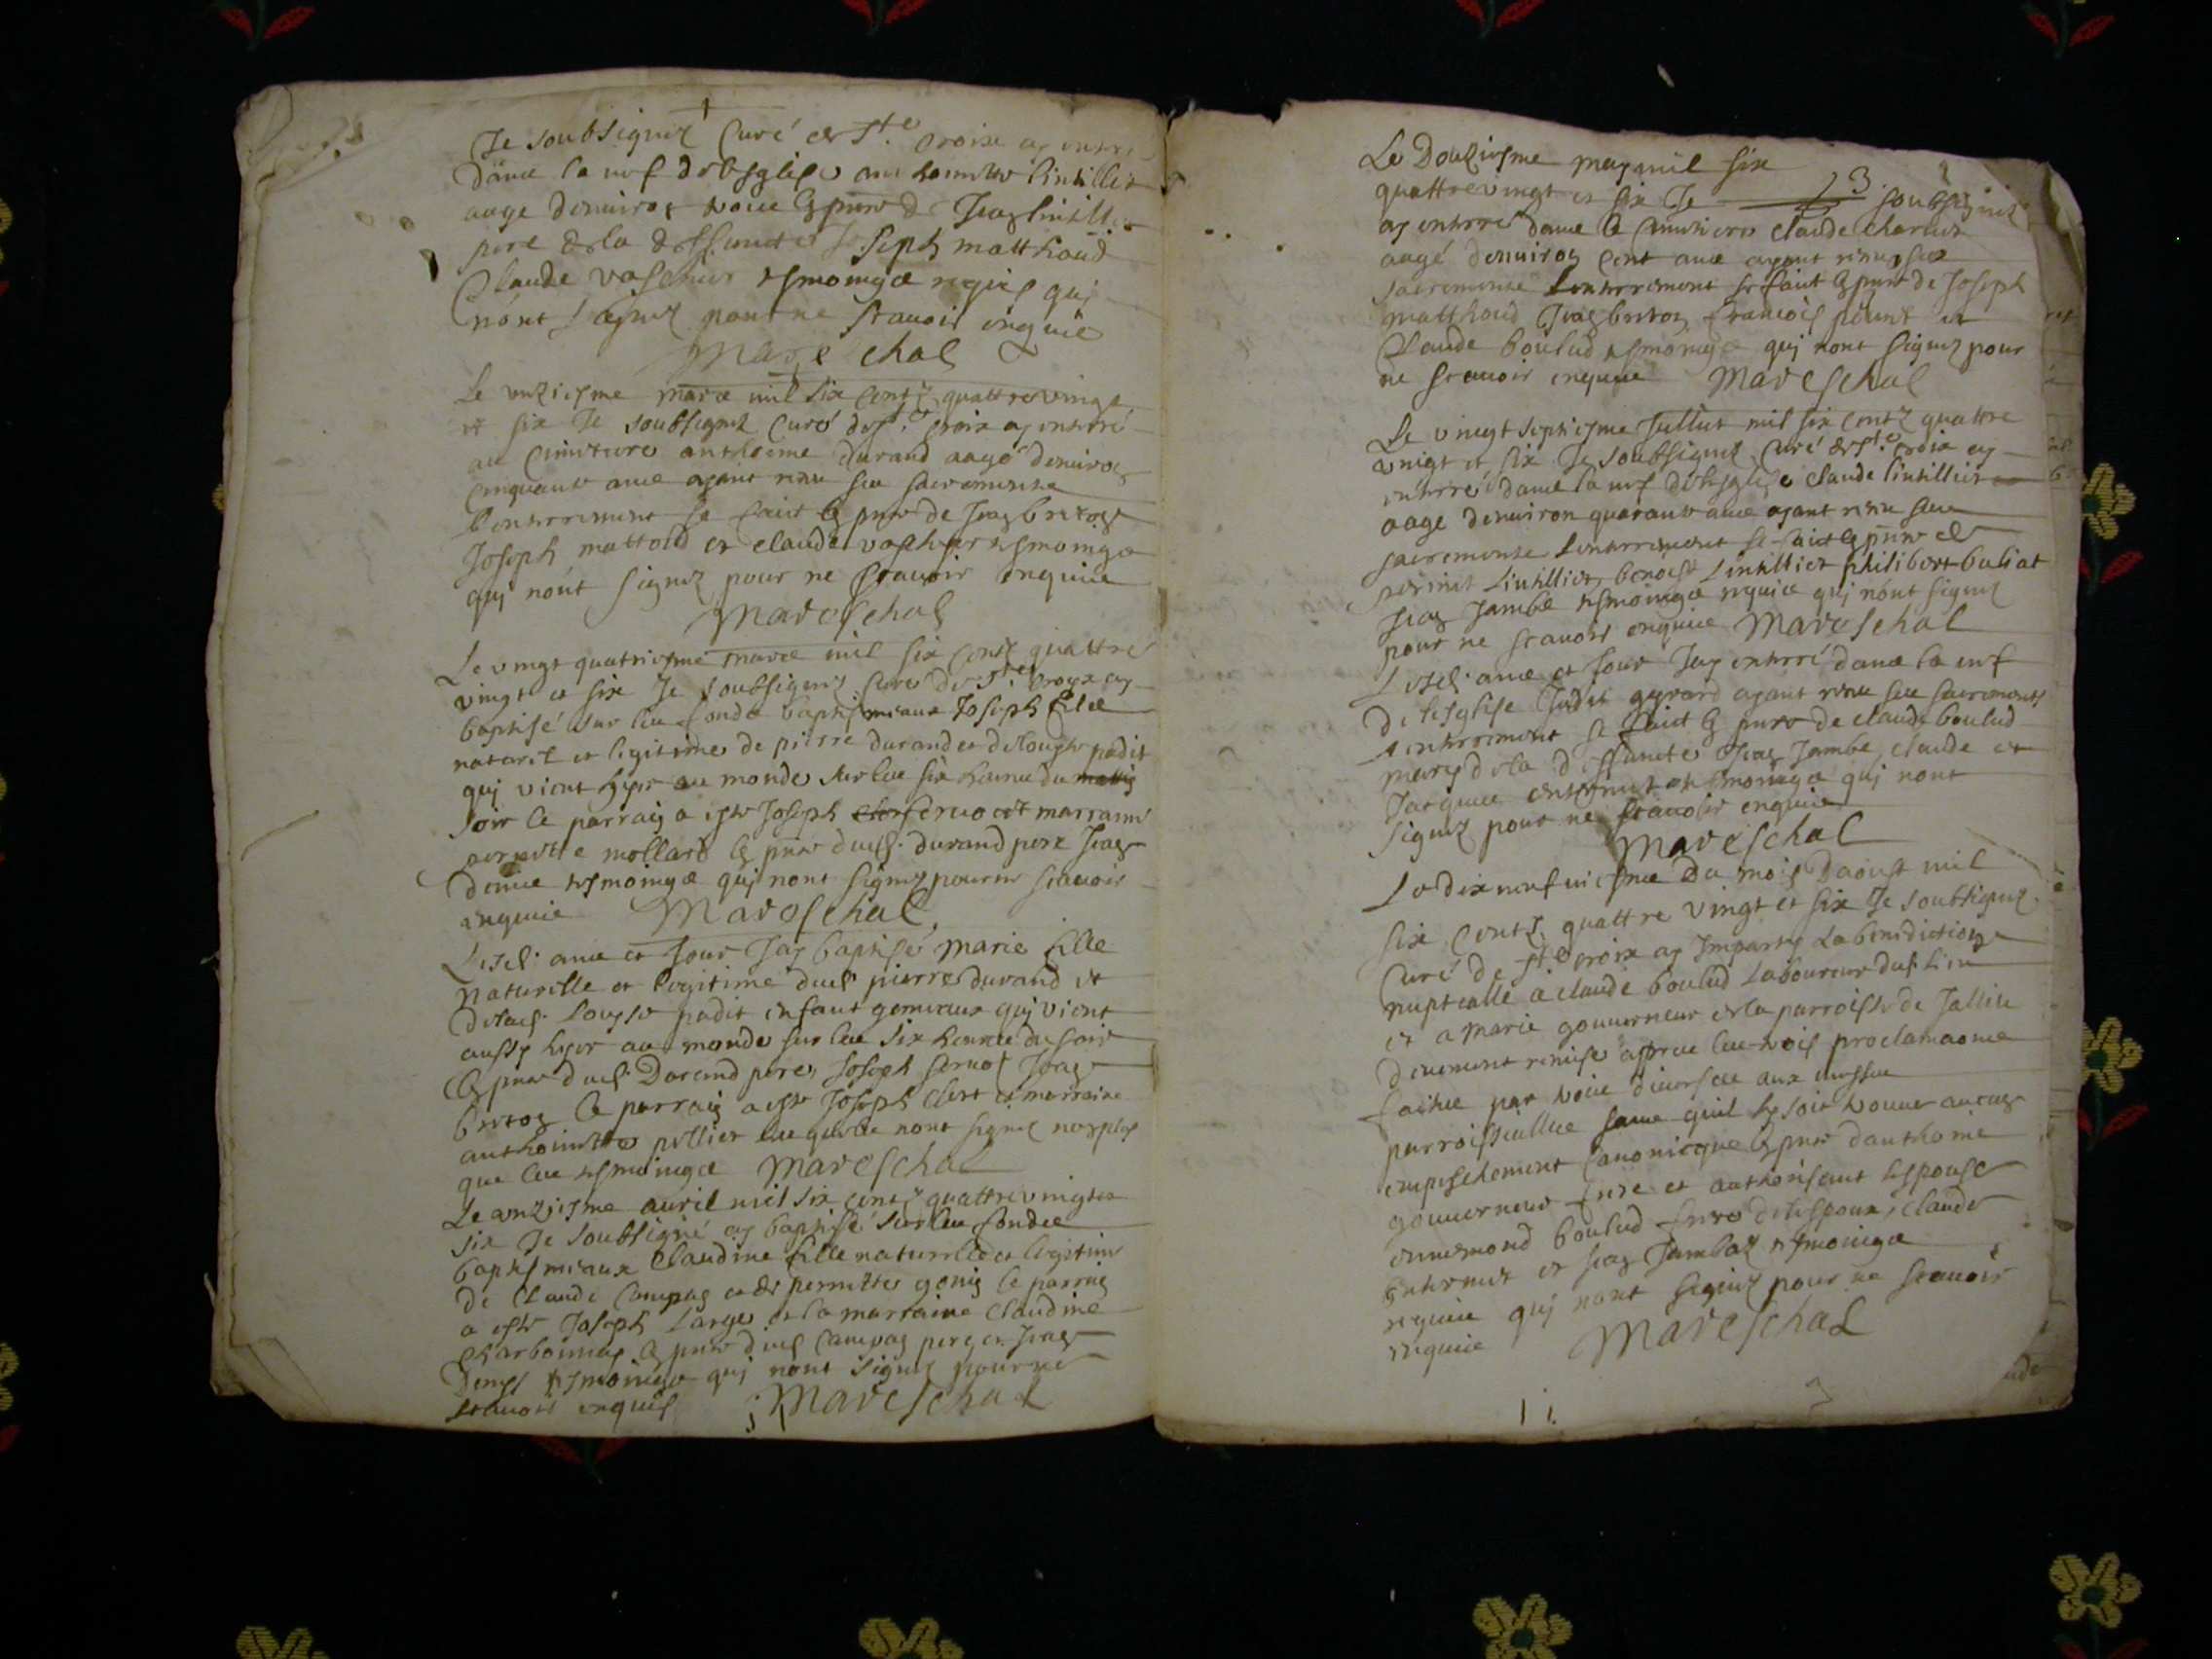 Je soubsigné Curé de Ste croix ay enterré
dans la nef de lesglise anthoinette lintillier
aage denuiron
pere de la deffuncte Joseph matthoud
Claude vascher tesmoings requis qui
nónt signez pour ne scauoir enquis
Mareschal
Le unziesme mars mil six centz quattre vingt
et six Je soubsignez Curé de Ste croix ay enterré
au cimetiere anthoine durand aagé denuiron
Cinquante ans ayant receu ses sacrements
lenterrement se faict en pnce de Jean breton
Joseph mattoud et claude vascher tesmoings
qui nónt signez pour ne scauoir enquis
Mareschal
Le vingt quatriesme mars mil six centz quattre
vingt et six Je soubsignez Curé de Ste croix ay
baptisé sur les fonds baptismeaux Joseph filz
naturel et legitime de pierre durand et de Louyse padit
qui vient hyer au monde sur les six heures du mattin
soir le parrain a esté Joseph seruo et marraine
pernette mollard en pnce dud. durand pere Jean
denis tesmoings qui nont signez pour ne scauoir
enquis Mareschal
Lesd. ans et Jour Jay baptisé marie fille
naturelle et legitime dud. pierre durand et
de lad. Louyse padit enfant gemeaux qui vient
aussy hyer au monde sur les six heures du soir
en pnce dud. Durand pere, Joseph seruos Jean
breton le parrain a esté Joseph clert et marraine
anthoinette pellier lesquels nont signez non plus
que les tesmoings Mareschal
Le unziesme auril mil six centz quattre vingt et
six Je soubsigné ay baptisé sur les fonds
baptismeaux Claudine fille naturelle et legitime
de Claude Campan et de pernette gonin le parrain
a esté Joseph Large et la marraine Claudine
Charbonnay en pnce dud Campan pere et Jean
Denys tesmoings qui nont signez pour ne
scauoir enquis Mareschal
Le Douziesme may mil six
quattrevingt et six Je 13 soubsignez
ay enterré dans le cimetiere claude charlet
aagé denuiron cent ans ayant receu ses
sacrements Lenterrement se faict en pnce de Joseph
matthoud Jean breton francois et
Claude boulud tesmoings qui nont signez pour
ne scauoir enquis Mareschal
Le vingt septiesme Jullet mil six centz quattre
vingt et six Je soubsignez Curé de Ste croix ay
enterré dans la nef de lesglise claude lintillier
aage denuiron quarante ans ayant receu ses
sacrements Lenterrement se faict en pnce de
Lintillier, benoist Lintillier philibert buliat
Jean Jambe tesmoings requis qui nónt signez
pour ne scauoir enquis Mareschal
Lesd. ans et Jour Jay enterré dans la nef
de lesglise Judit gyrard ayant receu ses sacrements
Lenterrement se faict en pnce de claude boulud
mary de la deffuncte Jean Jambe, claude et
Jacques tesmoings qui nont
signez pour ne scauoir enquis
Mareschal
Le dix neufuiesme Du mois Daoust mil
six centz quattre vingt et six Je soubsignez
Curé de Ste croix ay Imparty La benediction
nuptialle a claude boulud Laboureur dud. Lieu
et a marie gouuerneur de la parroisse de Jallieu
deuement remise apres les trois proclamaons
faictes par trois diuerses aux messes
parroissialles sans quil se soit trouué aucun
empeschement Canonicque en pnce danthoine
gouuerneur frere et authorisant lespouse
ennemond boulud frere de lespoux, claude
et Jean Jambaz tesmoings
requis qui nont signez pour ne scauoir
enquis Mareschal